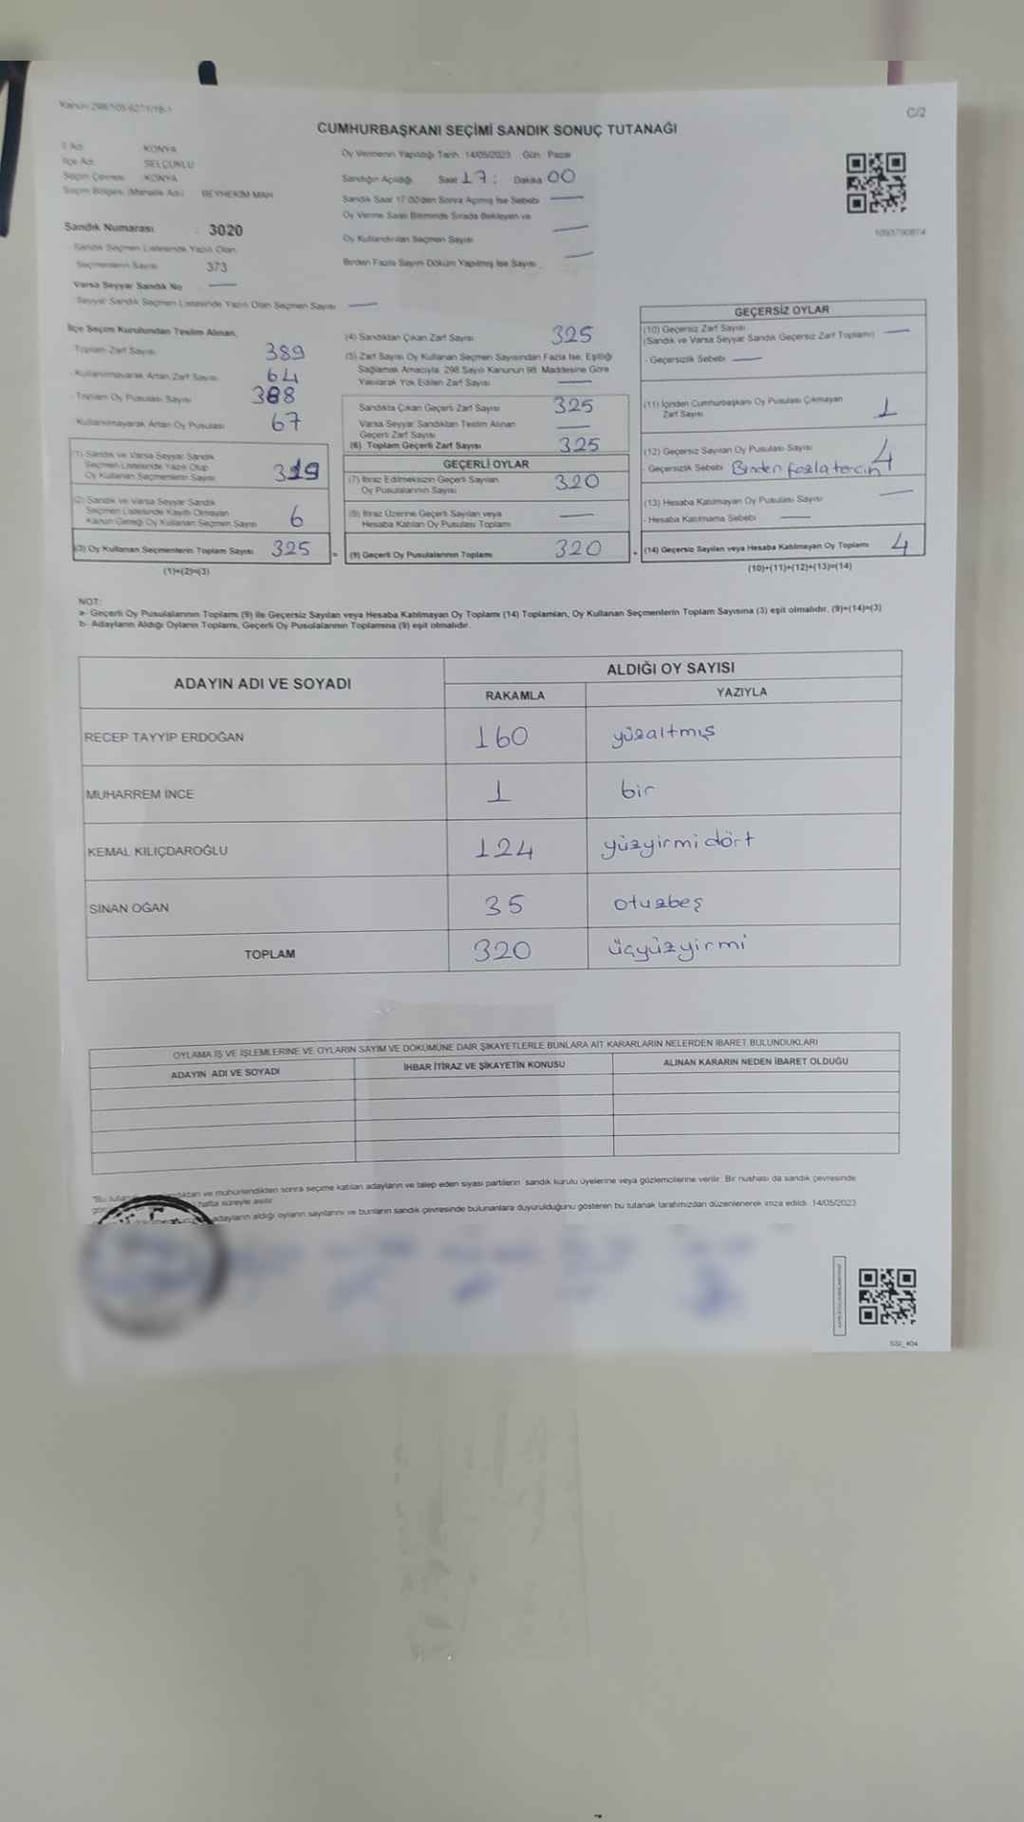 Kanun 298/105-6271/16-1
C/2
CUMHURBAŞKANI SEÇİMİ SANDIK SONUÇ TUTANAĞI
İl Adı KONYA
İlçe Adı SELÇUKLU
Seçim Çevresi KONYA
Seçim Bölgesi (Mahalle Adı) BEYHEKİM MAH
Sandık Numarası : 3020
Sandık Seçmen Listesinde Yazılı Olan
Seçmenlerin Sayısı 373
Varsa Seyyar Sandık No
Seyyar Sandık Seçmen Listesinde Yazılı Olan Seçmen Sayısı
Oy Vermenin Yapıldığı Tarih 14/05/2023 Gün Pazar
Sandığın Açıldığı Saat 17 : Dakika 00
Sandık Saat 17.00'den Sonra Açılmış İse Sebebi
Oy Verme Saati Bitiminde Sırada Bekleyen ve
Oy Kullandırılan Seçmen Sayısı
Birden Fazla Sayım Döküm Yapılmış İse Sayısı
1093790874
İlçe Seçim Kurulundan Teslim Alınan,
Toplam Zarf Sayısı 389
Kullanılmayarak Artan Zarf Sayısı 64
Toplam Oy Pusulası Sayısı 388
Kullanılmayarak Artan Oy Pusulası 67
(1) Sandık ve Varsa Seyyar Sandık
Seçmen Listesinde Yazılı Olup
Oy Kullanan Seçmenlerin Sayısı 319
(2) Sandık ve Varsa Seyyar Sandık
Seçmen Listesinde Kayıtlı Olmayan
Kanun Gereği Oy Kullanan Seçmen Sayısı 6
(3) Oy Kullanan Seçmenlerin Toplam Sayısı 325
(1)+(2)=(3)
(4) Sandıktan Çıkan Zarf Sayısı 325
(5) Zarf Sayısı Oy Kullanan Seçmen Sayısından Fazla İse, Eşitliği
Sağlamak Amacıyla, 298 Sayılı Kanunun 98. Maddesine Göre
Yakılarak Yok Edilen Zarf Sayısı
Sandıkta Çıkan Geçerli Zarf Sayısı 325
Varsa Seyyar Sandıktan Teslim Alınan
Geçerli Zarf Sayısı
(6) Toplam Geçerli Zarf Sayısı 325
GEÇERLİ OYLAR
(7) İtiraz Edilmeksizin Geçerli Sayılan
Oy Pusulalarının Sayısı 320
(8) İtiraz Üzerine Geçerli Sayılan veya
Hesaba Katılan Oy Pusulası Toplamı
= (9) Geçerli Oy Pusulalarının Toplamı 320
GEÇERSİZ OYLAR
(10) Geçersiz Zarf Sayısı
(Sandık ve Varsa Seyyar Sandık Geçersiz Zarf Toplamı)
- Geçersizlik Sebebi
(11) İçinden Cumhurbaşkanı Oy Pusulası Çıkmayan
Zarf Sayısı 1
(12) Geçersiz Sayılan Oy Pusulası Sayısı 4
- Geçersizlik Sebebi Birden fazla tercih
(13) Hesaba Katılmayan Oy Pusulası Sayısı
- Hesaba Katılmama Sebebi
+ (14) Geçersiz Sayılan veya Hesaba Katılmayan Oy Toplamı 4
(10)+(11)+(12)+(13)=(14)
NOT:
a- Geçerli Oy Pusulalarının Toplamı (9) ile Geçersiz Sayılan veya Hesaba Katılmayan Oy Toplamı (14) Toplamları, Oy Kullanan Seçmenlerin Toplam Sayısına (3) eşit olmalıdır. (9)+(14)=(3)
b- Adayların Aldığı Oyların Toplamı, Geçerli Oy Pusulalarının Toplamına (9) eşit olmalıdır.
ADAYIN ADI VE SOYADI ALDIĞI OY SAYISI
RAKAMLA YAZIYLA
RECEP TAYYİP ERDOĞAN 160 yüzaltmış
MUHARREM İNCE 1 bir
KEMAL KILIÇDAROĞLU 124 yüzyirmidört
SİNAN OĞAN 35 otuzbeş
TOPLAM 320 üçyüzyirmi
OYLAMA İŞ VE İŞLEMLERİNE VE OYLARIN SAYIM VE DÖKÜMÜNE DAİR ŞİKAYETLERLE BUNLARA AİT KARARLARIN NELERDEN İBARET BULUNDUKLARI
ADAYIN ADI VE SOYADI İHBAR İTİRAZ VE ŞİKAYETİN KONUSU ALINAN KARARIN NEDEN İBARET OLDUĞU
ve mühürlendikten sonra seçime katılan adayların ve talep eden siyasi partilerin sandık kurulu üyelerine veya gözlemcilerine verilir. Bir nüshası da sandık çevresinde
hafta süreyle asılır.
adayların aldığı oyların sayılarını ve bunların sandık çevresinde bulunanlara duyurulduğunu gösteren bu tutanak tarafımızdan düzenlenerek imza edildi. 14/05/2023